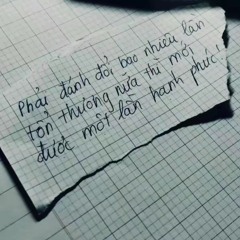 Phải đánh đổi bao nhiêu lần
tổn thương nữa thì mới
được một lần hạnh phúc!